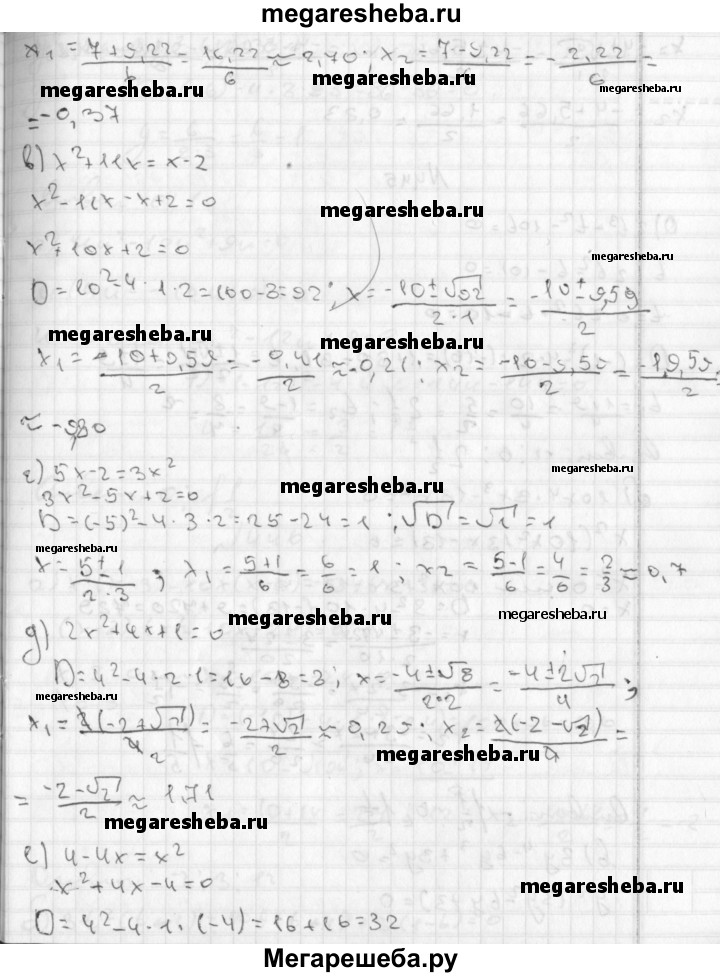 megaresheba.ru
x₁ = (7+9,22)/6 = 16,22/6 ≈ 2,70; x₂ = (7-9,22)/6 = -2,22/6 =
megaresheba.ru megaresheba.ru megaresheba.ru
= -0,37
в) x²+11x = x-2
x²-11x-x+2=0
megaresheba.ru
x²+10x+2=0
D=10²-4·1·2=100-8=92; x = (-10±√92)/(2·1) = (-10±9,59)/2
megaresheba.ru
x₁ = (-10+9,59)/2 = -0,41/2 ≈ -0,21; x₂ = (-10-9,59)/2 = -19,59/2
≈ -9,80
г) 5x-2=3x²
megaresheba.ru megaresheba.ru
3x²-5x+2=0
D=(-5)²-4·3·2=25-24=1; √D=√1=1
megaresheba.ru
x = (5±1)/(2·3); x₁ = (5+1)/6 = 6/6 = 1; x₂ = (5-1)/6 = 4/6 = 2/3 ≈ 0,7
megaresheba.ru megaresheba.ru
д) 2x²+4x+1=0
D=4²-4·2·1=16-8=8; x = (-4±√8)/(2·2) = (-4±2√2)/4;
megaresheba.ru
x₁ = 2(-2+√2)/4 2 = (-2+√2)/2 ≈ 0,29; x₂ = 2(-2-√2)/4 =
megaresheba.ru
= (-2-√2)/2 ≈ 1,71
megaresheba.ru
е) 4-4x=x²
x²+4x-4=0
megaresheba.ru
D=4²-4·1·(-4)=16+16=32
Мегарешеба.ру